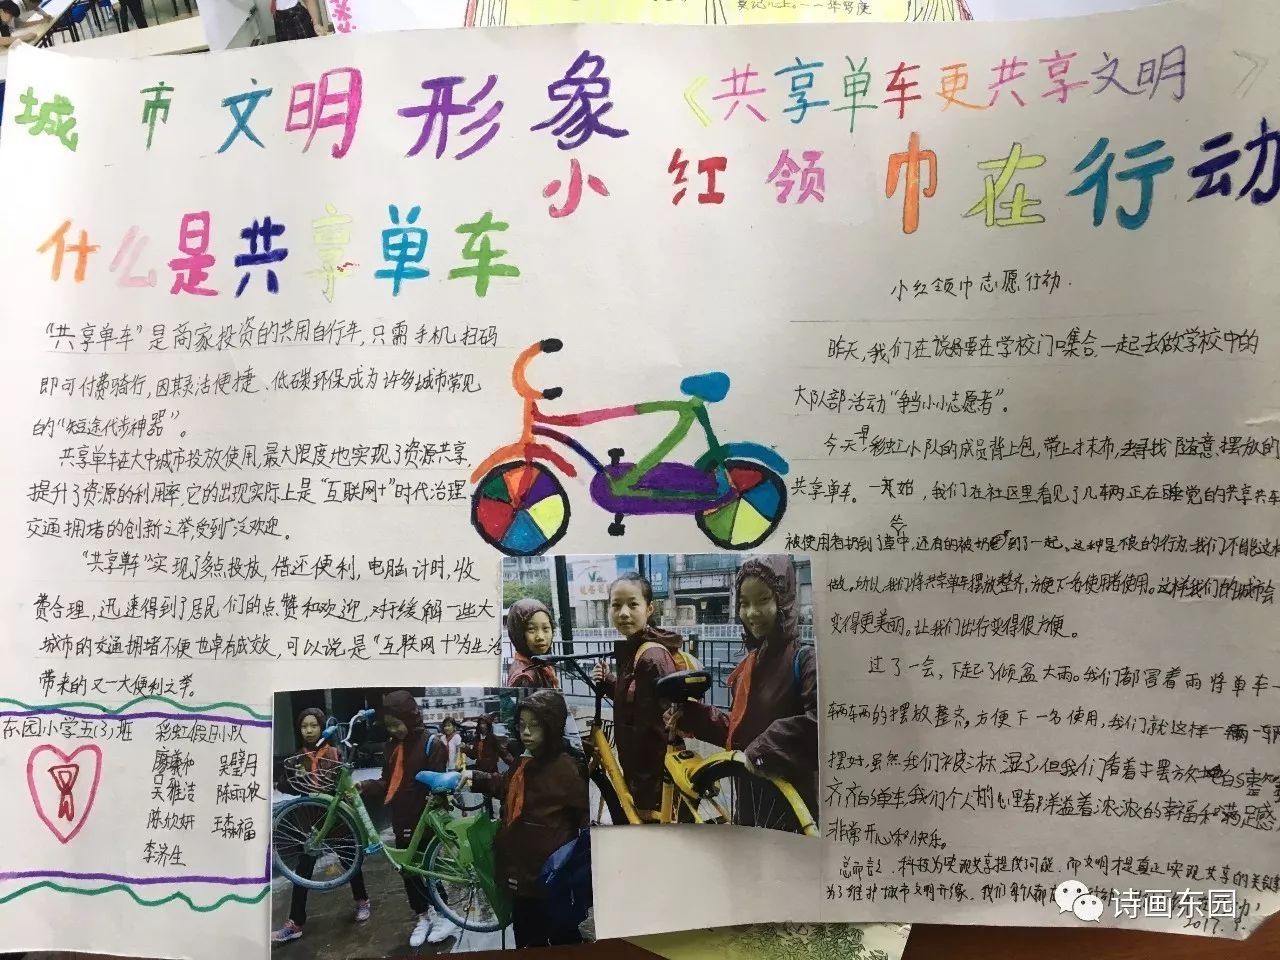 城市文明形象《共享单车更共享文明》
小红领巾在行动
什么是共享单车
“共享单车”是商家投资的共用自行车,只需手机扫码
即可付费骑行,因其灵活便捷、低碳环保成为许多城市常见
的“短途代步神器”。
共享单车在大中城市投放使用,最大限度地实现了资源共享,
提升了资源的利用率,它的出现实际上是“互联网+”时代治理
交通拥堵的创新之举受到广泛欢迎。
“共享单车”实现了多点投放,借还便利,电脑计时,收
费合理,迅速得到了居民们的点赞和欢迎,对于缓解一些大
城市的交通拥堵不便也卓有成效,可以说是“互联网+”为生活
带来的又一大便利之举。
东园小学五(3)班 彩虹假日小队
廖羲和 吴璧月
吴雅洁 陈雨
陈欣妍 王森福
李济生
小红领巾志愿行动.
昨天,我们在说好要在学校门口集合一起去做学校中的
大队部活动“争当小小志愿者”。
今天早,彩虹小队的成员背上包,带上抹布,去寻找随意摆放的
共享单车。一开始,我们在社区里看见了几辆正在睡觉的共享单车
被使用者扔到了草中,还有的被扔到了一起。这种是不良的行为,我们不能这样
做。所以,我们将共享单车摆放整齐,方便下一名使用者使用。这样我们的城市会
变得更美丽。让我们出行变得很方便。
过了一会,下起了倾盆大雨。我们都冒着雨将单车一
辆辆的摆放整齐,方便下一名使用,我们就这样一辆一辆
摆好,虽然我们衣服淋湿了,但我们看着手摆放的整整
齐齐的单车,我们个人的心里都洋溢着浓浓的幸福和满足感,
非常开心和快乐。
总而言之,科技为实现共享提供可能,而文明才是真正实现共享的关键
为了维护城市文明形象,我们每人都
2017.9.
诗画东园